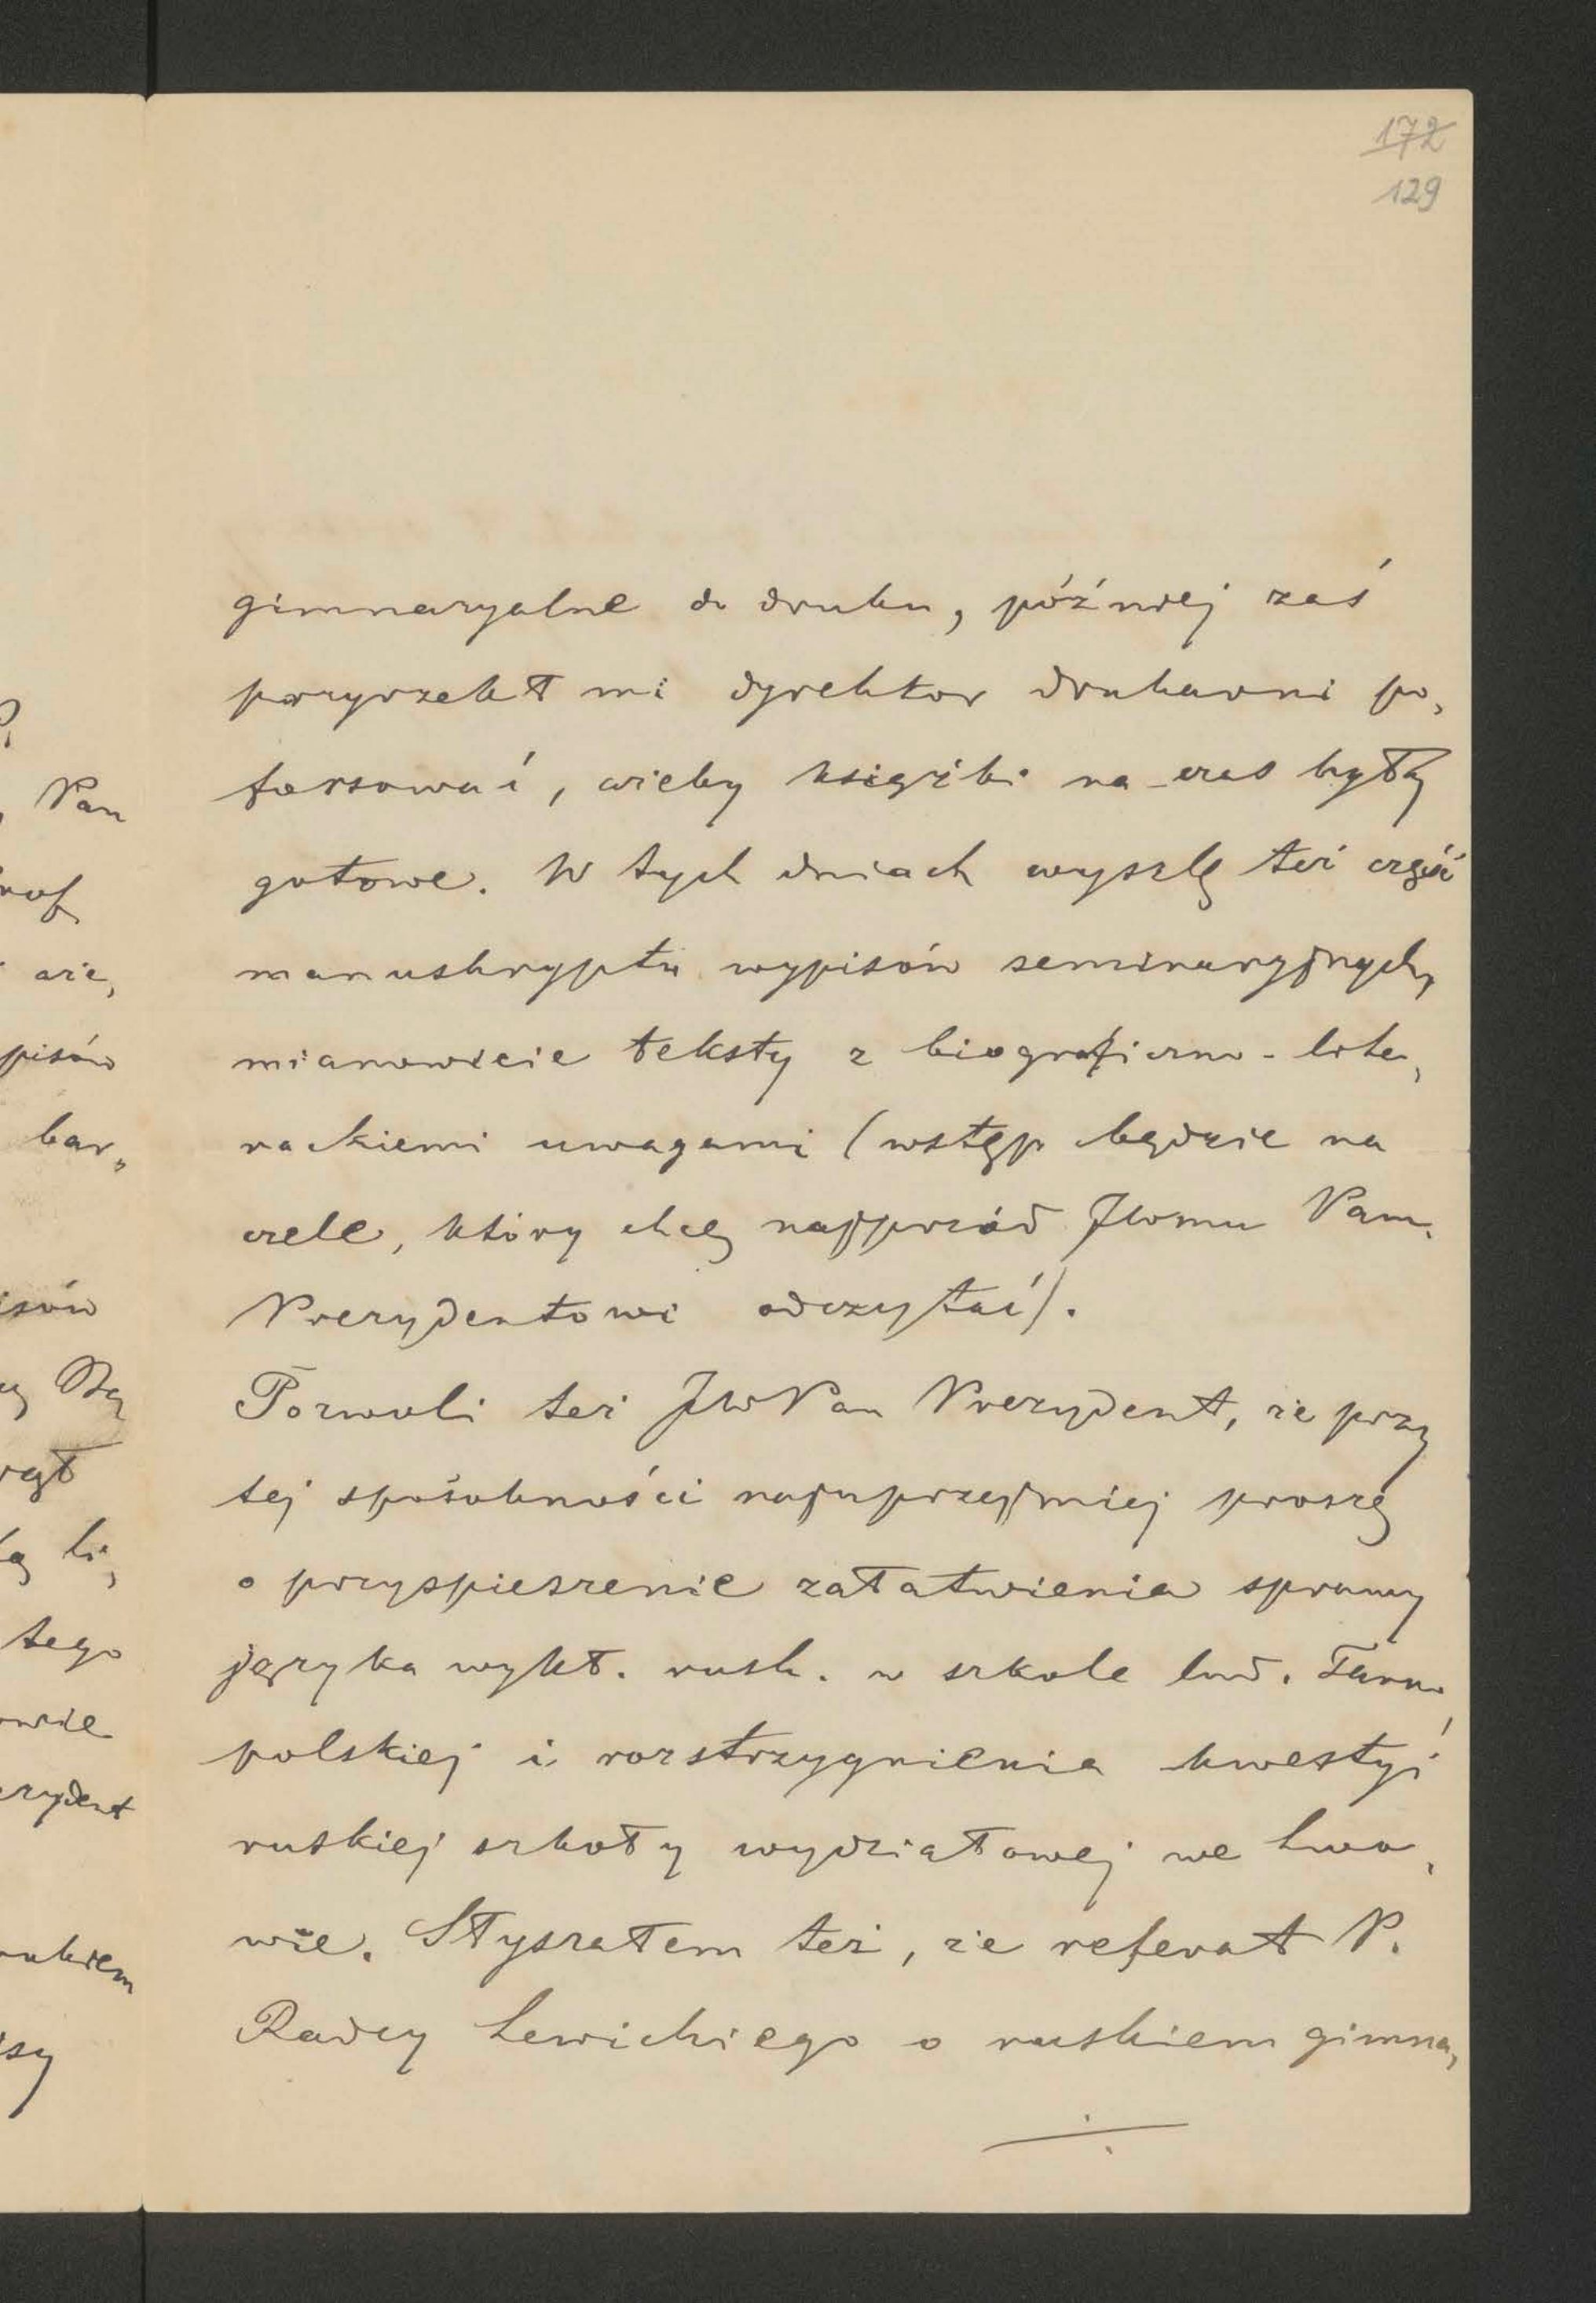 172
129
gimnazyalne do druku, później zaś
przyrzekł mi dyrektor drukarni po„
forsować, ażeby książki na czas były
gotowe. W tych dniach wyszlę też część
manuskryptu wypisów seminaryjnych,
mianowicie teksty z biograficzno-lite„
rackiemi uwagami (wstęp będzie na
czele, który chcę najprzód JWmu Panu
Prezydentowi odczytać).
Pozwoli też JWPan Prezydent, że przy
tej sposobności najuprzejmiej proszę
o przyspieszenie załatwienia sprawy
języka wykł. rusk. w szkole lud. Tarno„
polskiej i rozstrzygnienia kwestyi
ruskiej szkoły wydziałowej we Lwo„
wie. Słyszałem też, że referat P.
Radcy Lewickiego o ruskiem gimna„
P.
Pan
pisów
bar„
tego